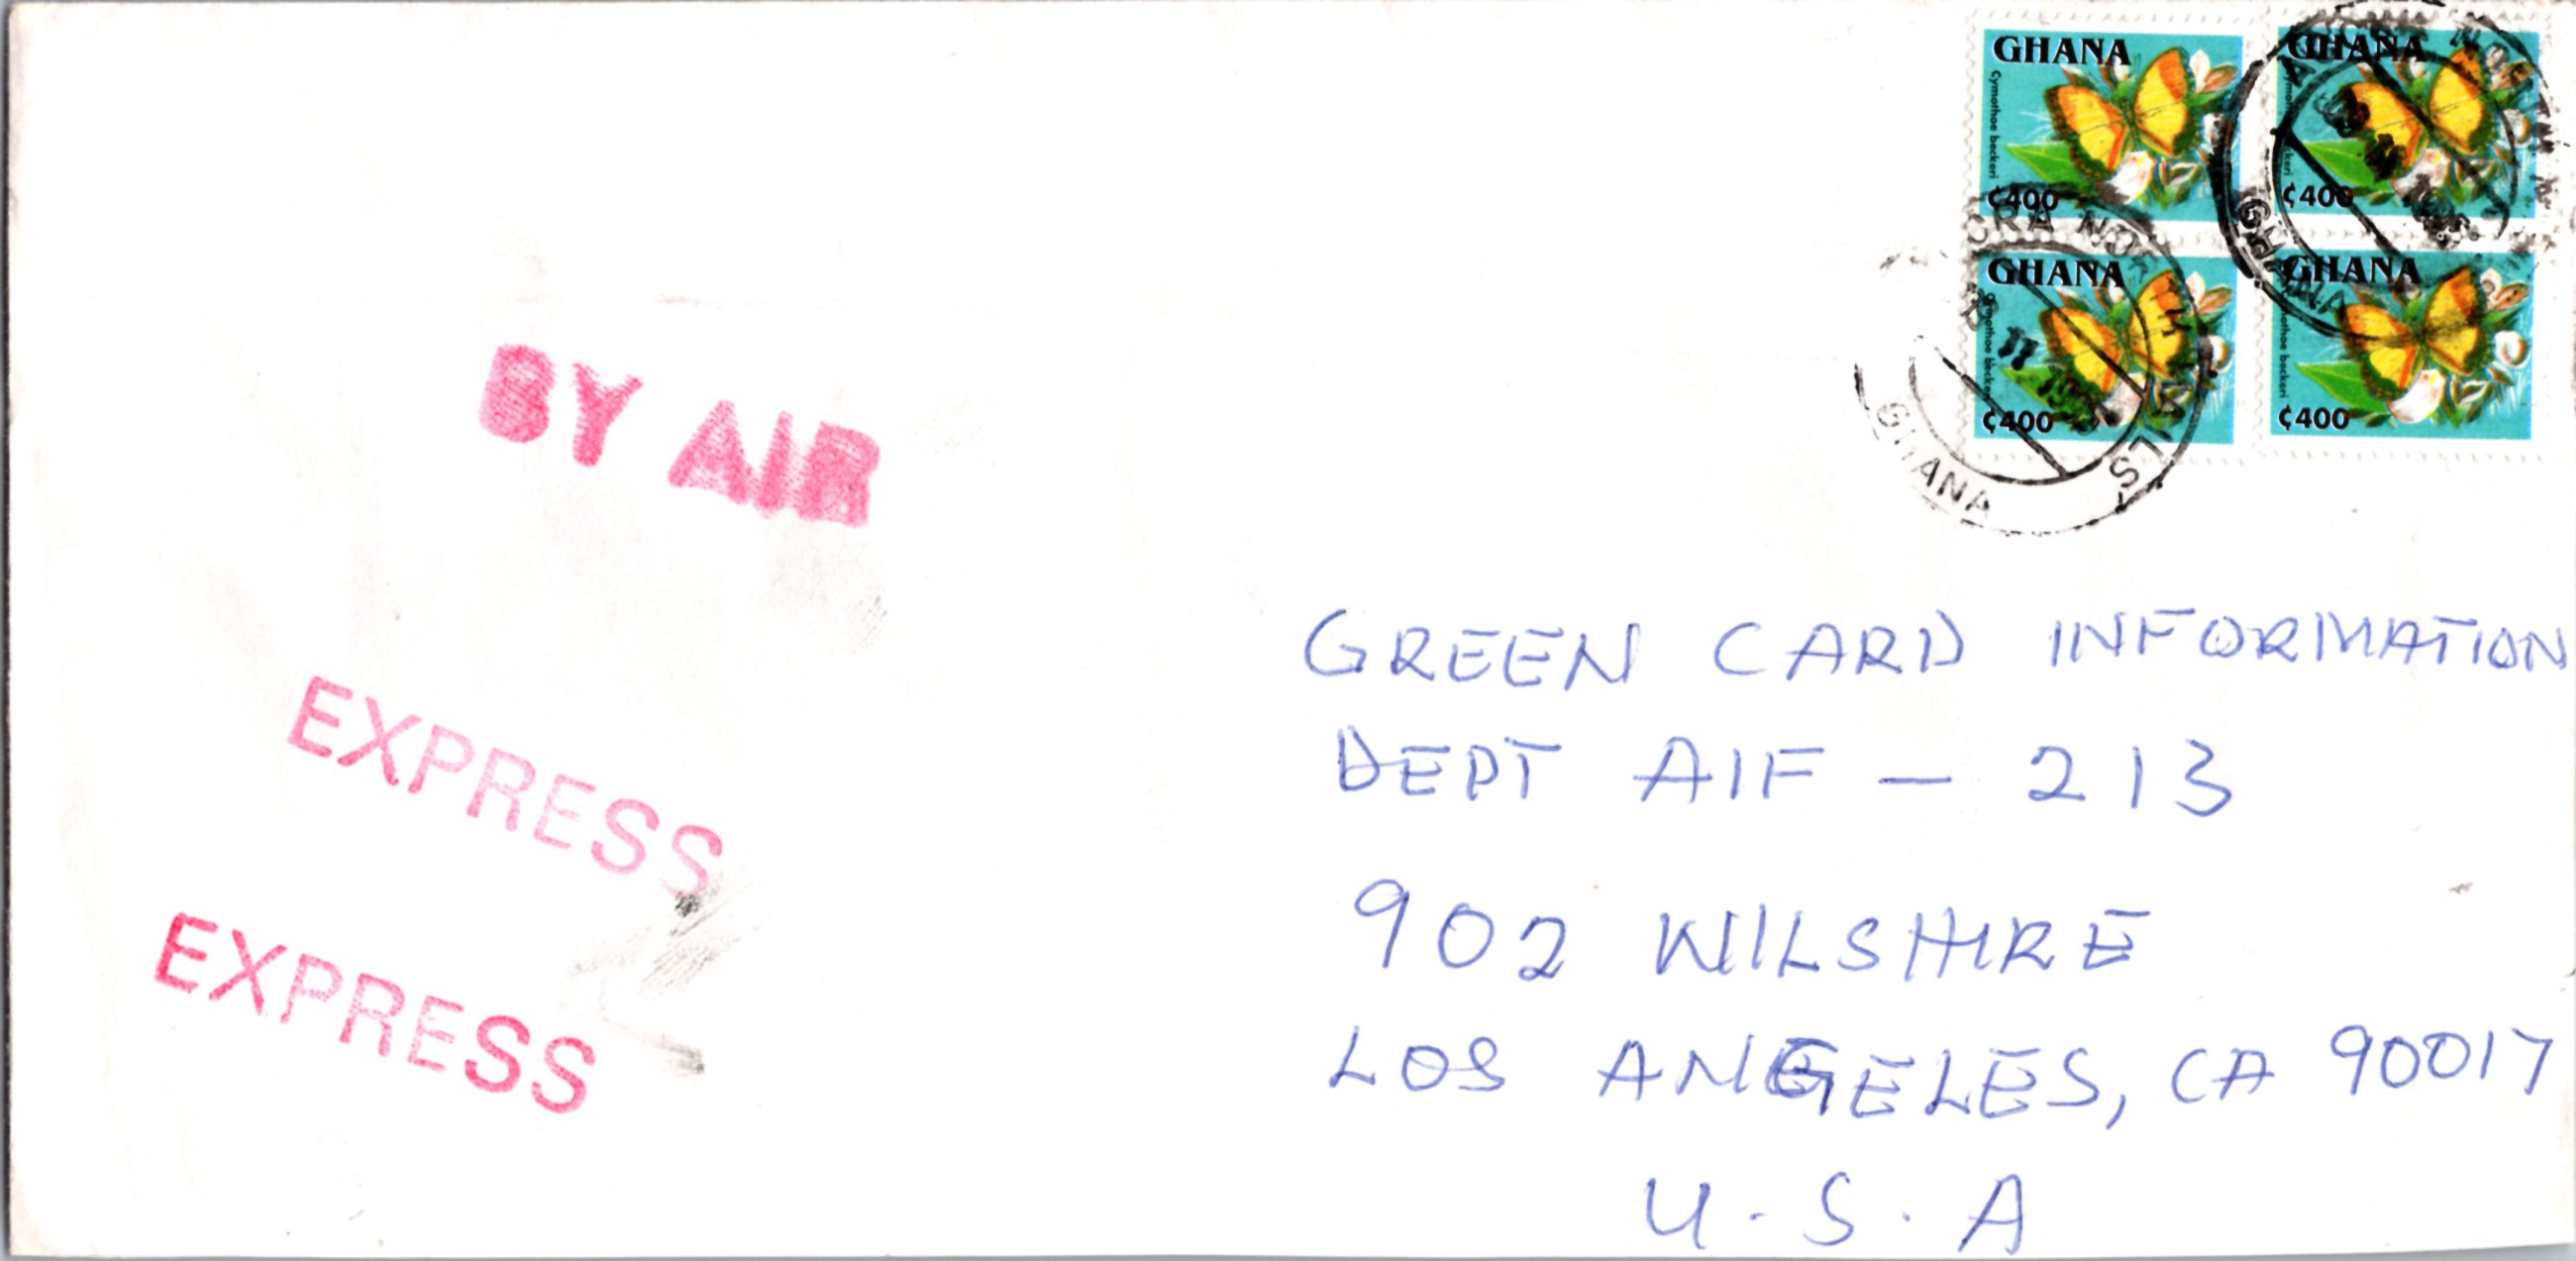 GHANA
Cymothoe beckeri
¢400
GHANA
¢400
GHANA
Cymothoe beckeri
¢400
GHANA
Cymothoe beckeri
¢400
GHANA
GHANA
BY AIR
EXPRESS
EXPRESS
GREEN CARD INFORMATION
DEPT AIF - 213
902 WILSHIRE
LOS ANGELES, CA 90017
U.S.A